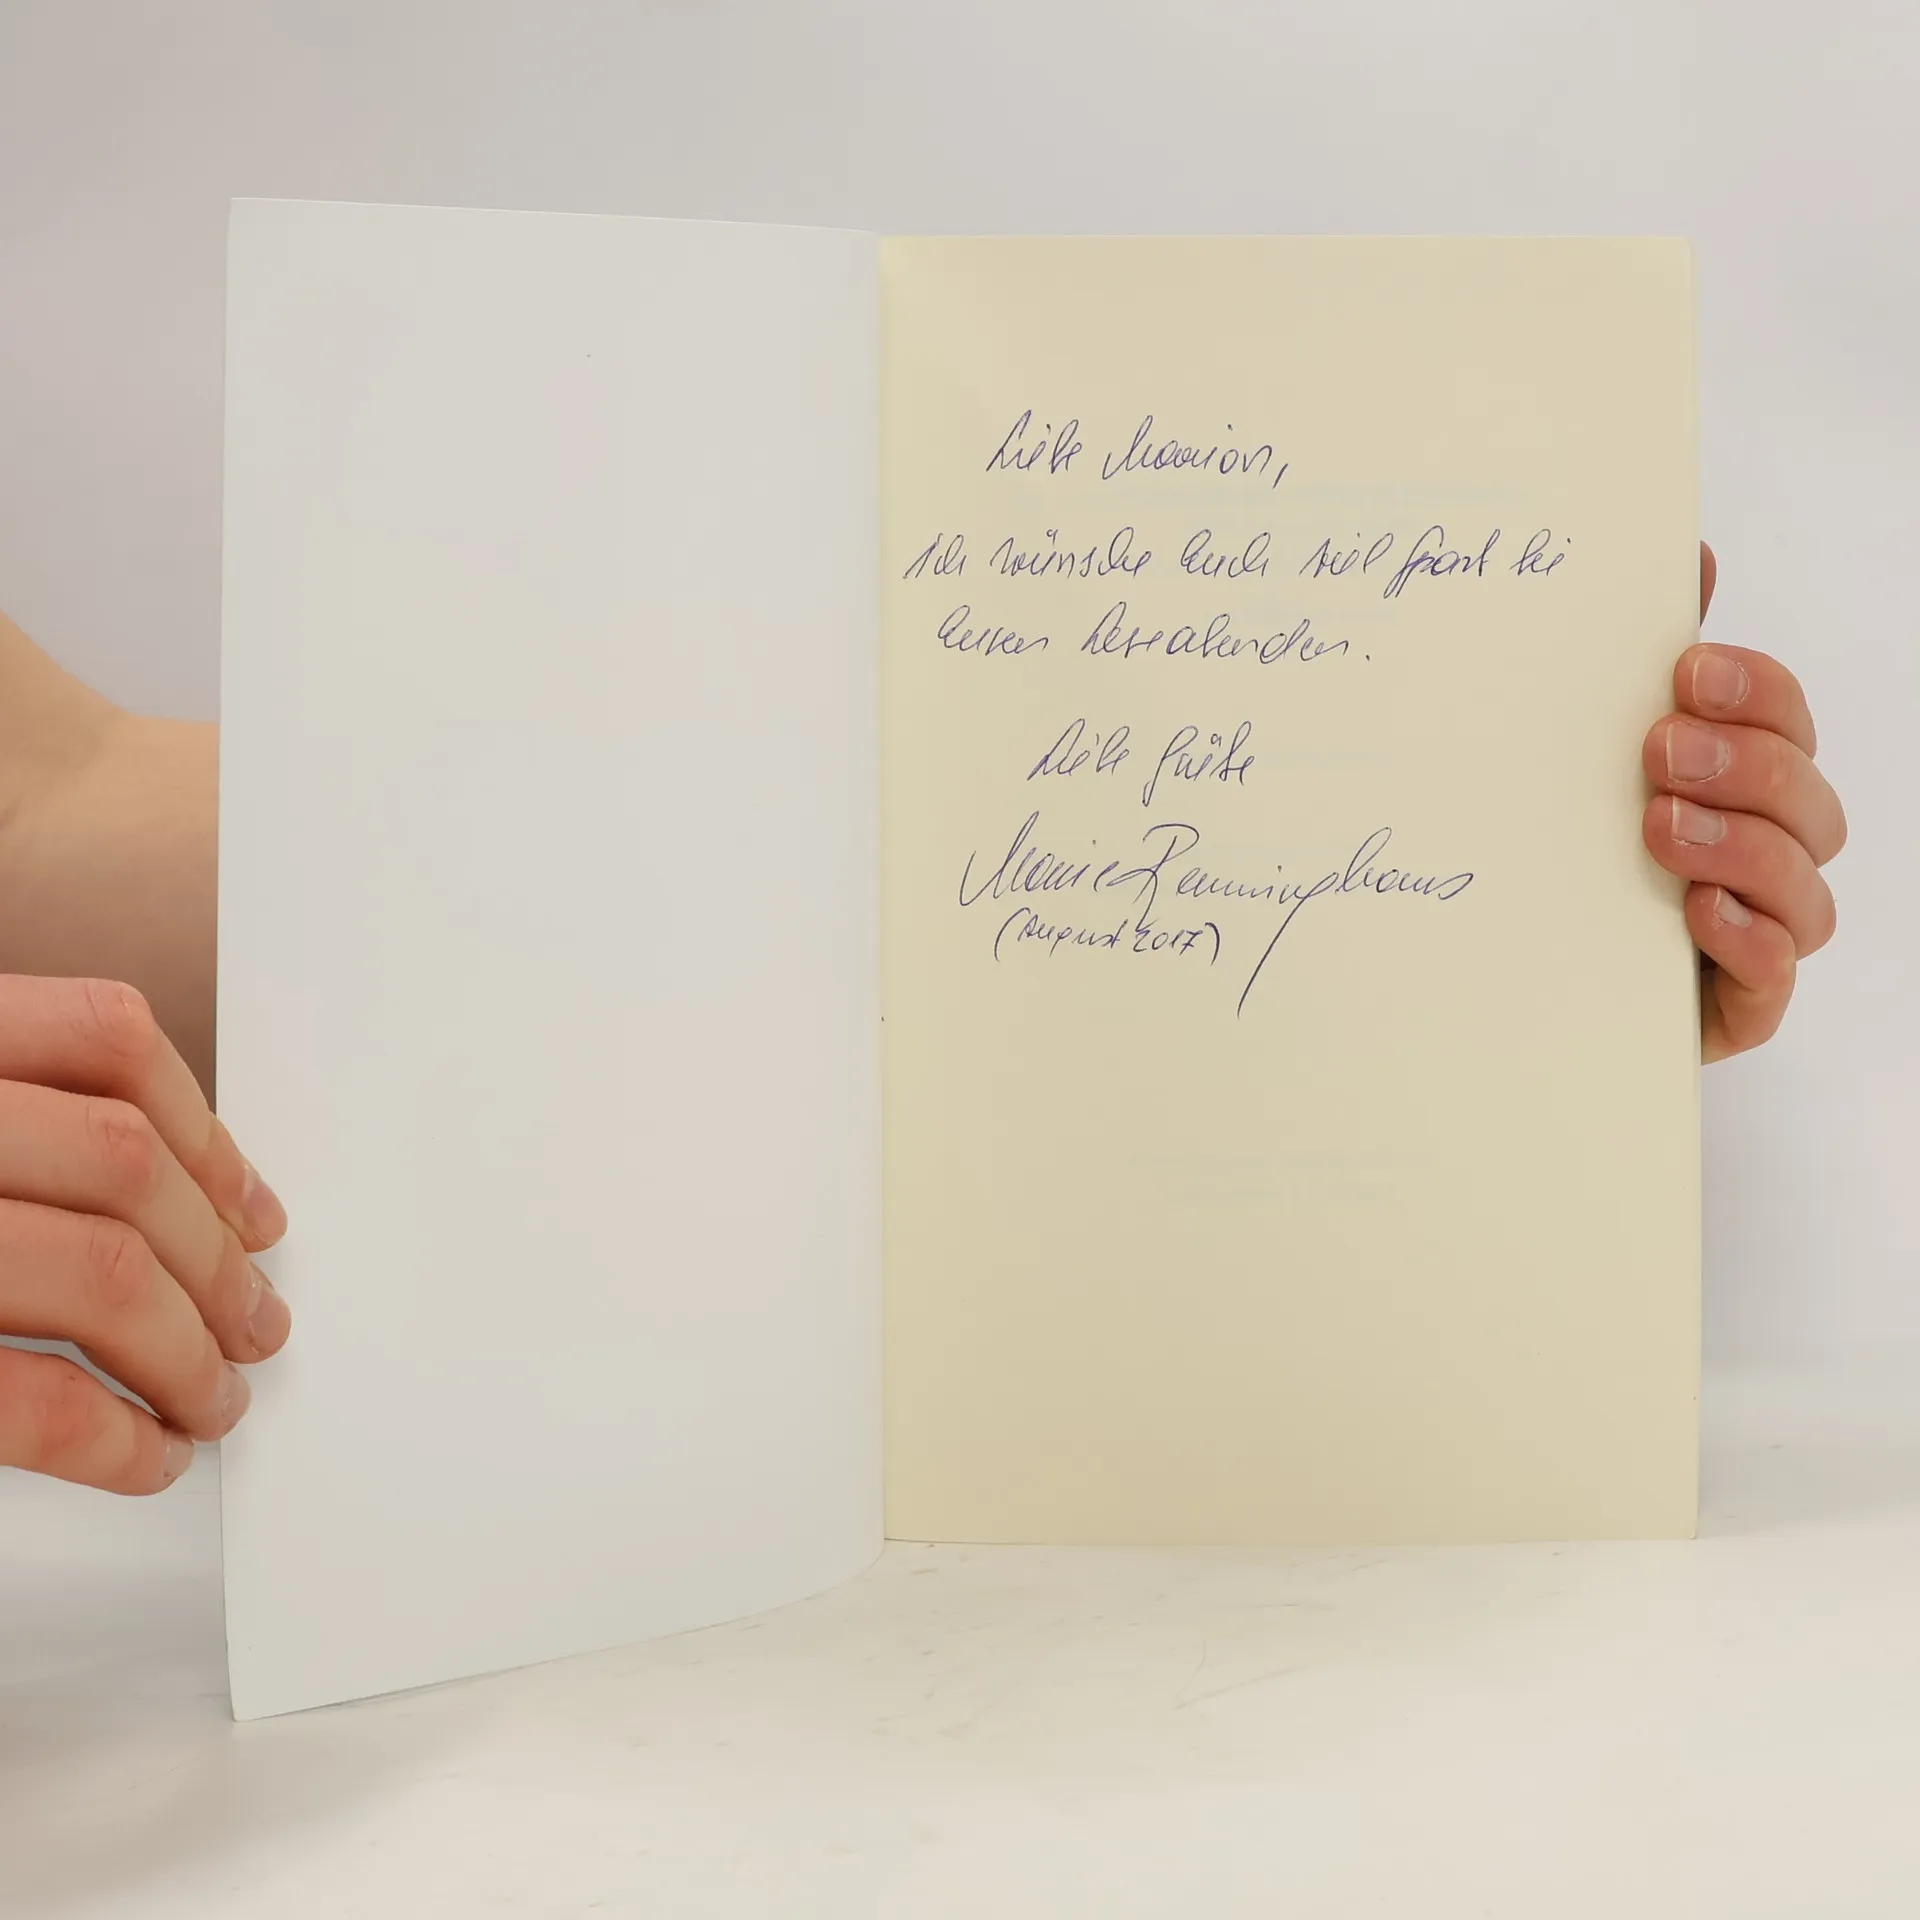 Liebe Marion,
ich wünsche Euch viel Spaß bei
Euren Leseabenden.
Liebe Grüße
Marie Renninghaus
(August 2017)